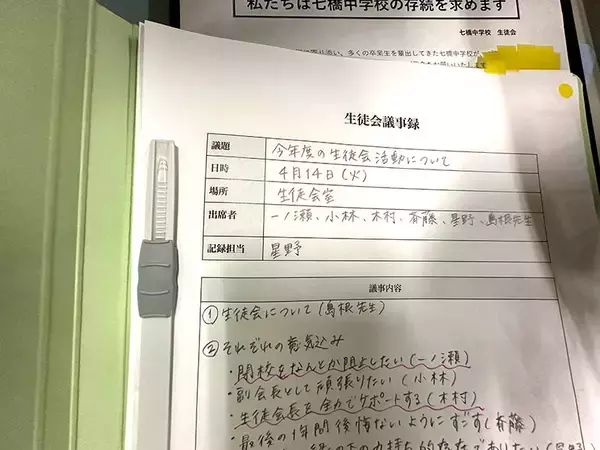 私たちは七橋中学校の存続を求めます
七橋中学校 生徒会
り添い、多くの卒業生を輩出してきた七橋中学校が
生徒会議事録
議題 今年度の生徒会活動について
日時 4月14日(火)
場所 生徒会室
出席者 一ノ瀬、小林、木村、斉藤、星野、島根先生
記録担当 星野
議事内容
①生徒会について(島根先生)
②それぞれの意気込み
・閉校をなんとか阻止したい(一ノ瀬)
・副会長として頑張りたい(小林)
・生徒会長を全力でサポートする(木村)
・最後の1年間後悔ないようにすごす(斉藤)
の下の力持ち的存在でありたい(星野)